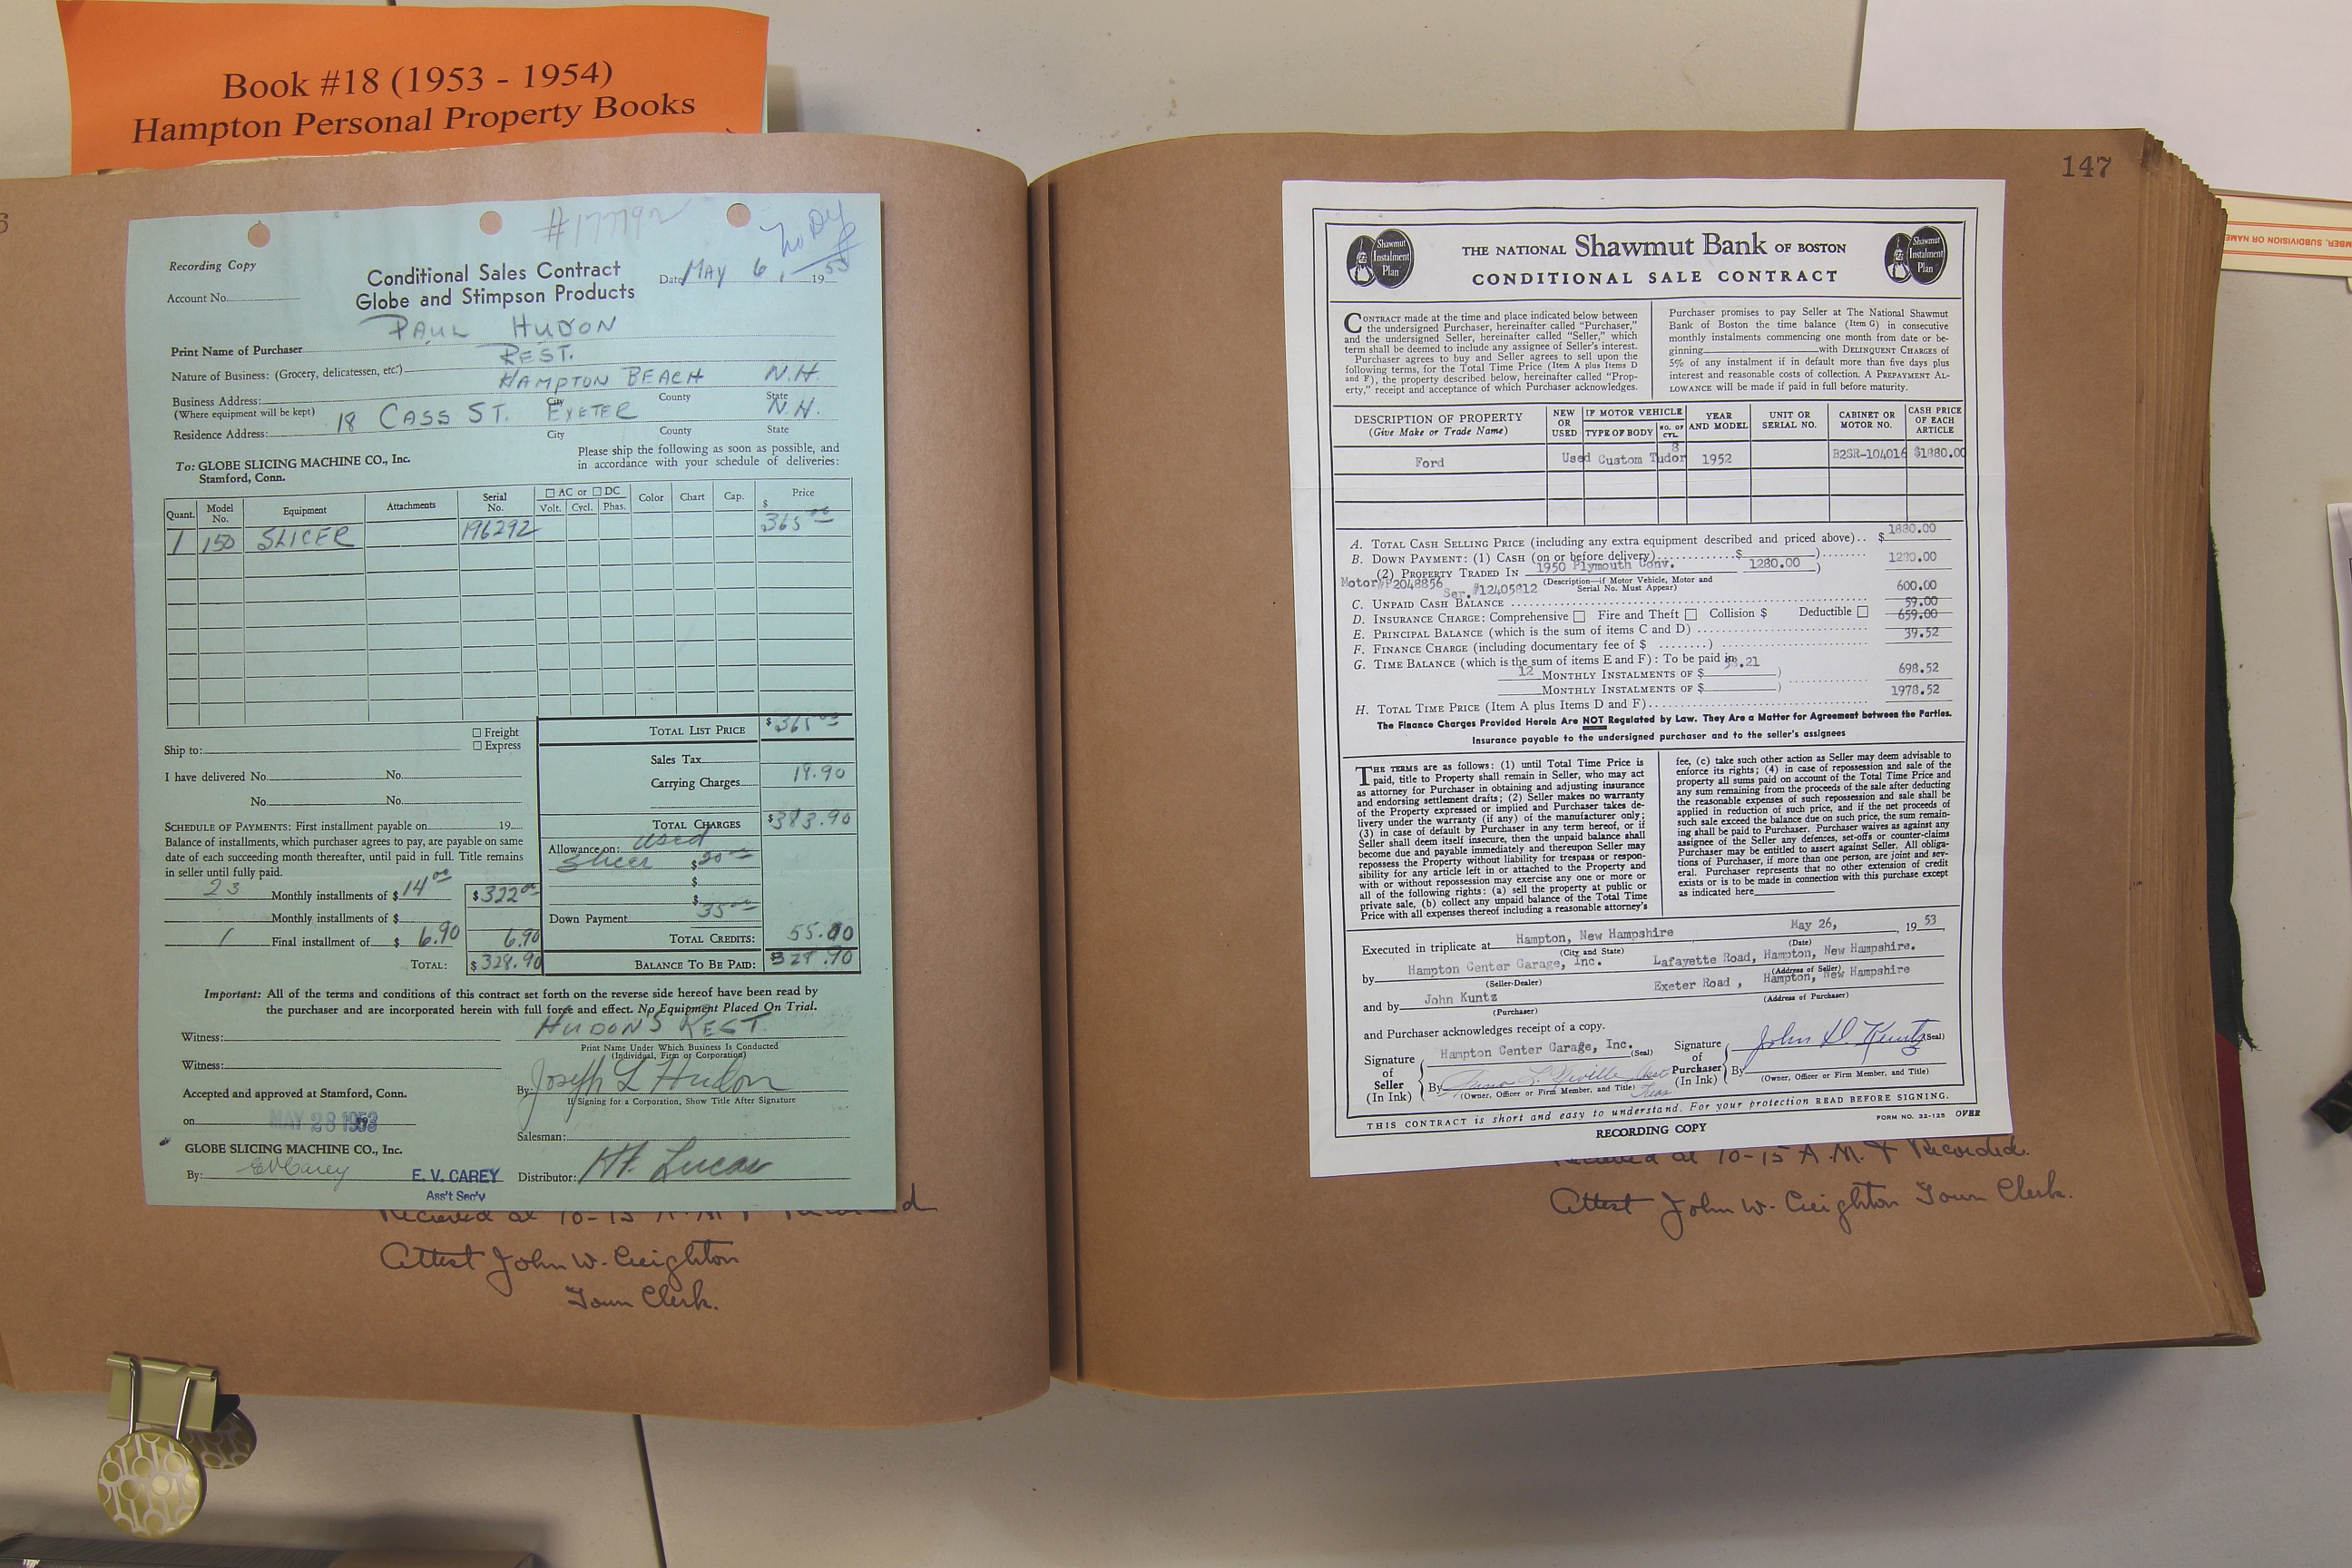 Book #18 (1953 - 1954)
Hampton Personal Property Books
#177192
No Dy
Recording Copy
Account No.
Conditional Sales Contract
Globe and Stimpson Products
Date MAY 6, 1953
PAUL HUDON
Print Name of Purchaser
REST.
Nature of Business: (Grocery, delicatessen, etc.)
HAMPTON BEACH N.H.
Business Address:
City County State
(Where equipment will be kept)
18 CASS ST. EXETER N.H.
Residence Address:
City County State
To: GLOBE SLICING MACHINE CO., Inc.
Stamford, Conn.
Please ship the following as soon as possible, and
in accordance with your schedule of deliveries:
Quant. Model No. Equipment Attachments Serial No. AC or DC Volt. Cycl. Phas. Color Chart Cap. Price
$
1 150 SLICER 196292 365 00
Ship to:
Freight
Express
I have delivered No. No.
No. No.
SCHEDULE OF PAYMENTS: First installment payable on 19
Balance of installments, which purchaser agrees to pay, are payable on same
date of each succeeding month thereafter, until paid in full. Title remains
in seller until fully paid.
23 Monthly installments of $ 14 00 $ 322 00
Monthly installments of $
1 Final installment of $ 6.90 6.90
TOTAL: $ 328.90
TOTAL LIST PRICE $ 365 00
Sales Tax
Carrying Charges 19.90
TOTAL CHARGES $ 383.90
Allowance on: Used
Slicer $ 20 00
$
$
Down Payment 35 00
TOTAL CREDITS: 55.00
BALANCE TO BE PAID: $ 328.90
Important: All of the terms and conditions of this contract set forth on the reverse side hereof have been read by
the purchaser and are incorporated herein with full force and effect. No Equipment Placed On Trial.
HUDON'S REST.
Witness:
Print Name Under Which Business Is Conducted
(Individual, Firm or Corporation)
Witness:
By: Joseph L Hudon
If Signing for a Corporation, Show Title After Signature
Accepted and approved at Stamford, Conn.
on MAY 28 1953
Salesman:
GLOBE SLICING MACHINE CO., Inc.
By: E V Carey
E. V. CAREY
Ass't Sec'y
Distributor: H.F. Lucas
Received at 10-15 A.M & Recorded
Attest John W. Creighton
Town Clerk.
147
Shawmut Instalment Plan
THE NATIONAL Shawmut Bank OF BOSTON
CONDITIONAL SALE CONTRACT
Shawmut Instalment Plan
CONTRACT made at the time and place indicated below between
the undersigned Purchaser, hereinafter called "Purchaser,"
and the undersigned Seller, hereinafter called "Seller," which
term shall be deemed to include any assignee of Seller's interest.
Purchaser agrees to buy and Seller agrees to sell upon the
following terms, for the Total Time Price (Item A plus Items D
and F), the property described below, hereinafter called "Prop-
erty," receipt and acceptance of which Purchaser acknowledges.
Purchaser promises to pay Seller at The National Shawmut
Bank of Boston the time balance (Item G) in consecutive
monthly instalments commencing one month from date or be-
ginning with DELINQUENT CHARGES of
5% of any instalment if in default more than five days plus
interest and reasonable costs of collection. A PREPAYMENT AL-
LOWANCE will be made if paid in full before maturity.
DESCRIPTION OF PROPERTY (Give Make or Trade Name) NEW OR USED IF MOTOR VEHICLE TYPE OF BODY NO. OF CYL. YEAR AND MODEL UNIT OR SERIAL NO. CABINET OR MOTOR NO. CASH PRICE OF EACH ARTICLE
8
Ford Used Custom Tudor 1952 B2SR-104016 $1880.00
A. TOTAL CASH SELLING PRICE (including any extra equipment described and priced above).. $ 1880.00
B. DOWN PAYMENT: (1) CASH (on or before delivery) $ ) 1280.00
(2) PROPERTY TRADED IN 1950 Plymouth Conv. 1280.00 )
Motor#P2048856 Ser. #12405812 (Description—if Motor Vehicle, Motor and Serial No. Must Appear)
C. UNPAID CASH BALANCE 600.00
D. INSURANCE CHARGE: Comprehensive Fire and Theft Collision $ Deductible 59.00
E. PRINCIPAL BALANCE (which is the sum of items C and D) 659.00
F. FINANCE CHARGE (including documentary fee of $ ........) 39.52
G. TIME BALANCE (which is the sum of items E and F): To be paid in
12 MONTHLY INSTALMENTS OF $ 58.21 ) 698.52
MONTHLY INSTALMENTS OF $ )
H. TOTAL TIME PRICE (Item A plus Items D and F) 1978.52
The Finance Charges Provided Herein Are NOT Regulated by Law. They Are a Matter for Agreement between the Parties.
Insurance payable to the undersigned purchaser and to the seller's assignees
THE TERMS are as follows: (1) until Total Time Price is
paid, title to Property shall remain in Seller, who may act
as attorney for Purchaser in obtaining and adjusting insurance
and endorsing settlement drafts; (2) Seller makes no warranty
of the Property expressed or implied and Purchaser takes de-
livery under the warranty (if any) of the manufacturer only;
(3) in case of default by Purchaser in any term hereof, or if
Seller shall deem itself insecure, then the unpaid balance shall
become due and payable immediately and thereupon Seller may
repossess the Property without liability for trespass or respon-
sibility for any article left in or attached to the Property and
with or without repossession may exercise any one or more or
all of the following rights: (a) sell the property at public or
private sale, (b) collect any unpaid balance of the Total Time
Price with all expenses thereof including a reasonable attorney's
fee, (c) take such other action as Seller may deem advisable to
enforce its rights; (4) in case of repossession and sale of the
property all sums paid on account of the Total Time Price and
any sum remaining from the proceeds of the sale after deducting
the reasonable expenses of such repossession and sale shall be
applied in reduction of such price, and if the net proceeds of
such sale exceed the balance due on such price, the sum remain-
ing shall be paid to Purchaser. Purchaser waives as against any
assignee of the Seller any defences, set-offs or counter-claims
Purchaser may be entitled to assert against Seller. All obliga-
tions of Purchaser, if more than one person, are joint and sev-
eral. Purchaser represents that no other extension of credit
exists or is to be made in connection with this purchase except
as indicated here
Executed in triplicate at Hampton, New Hampshire May 26, 19 53
(City and State) (Date)
by Hampton Center Garage, Inc. Lafayette Road, Hampton, New Hampshire.
(Seller-Dealer) (Address of Seller)
and by John Kuntz Exeter Road, Hampton, New Hampshire
(Purchaser) (Address of Purchaser)
and Purchaser acknowledges receipt of a copy.
Signature of Seller (In Ink) Hampton Center Garage, Inc. (Seal)
By Neville Asst Treas
(Owner, Officer or Firm Member, and Title)
Signature of Purchaser (In Ink) John D. Kuntz (Seal)
By
(Owner, Officer or Firm Member, and Title)
THIS CONTRACT is short and easy to understand. For your protection READ BEFORE SIGNING.
RECORDING COPY
FORM NO. 32-125 OVER
Received at 10-15 A.M. & Recorded.
Attest John W. Creighton Town Clerk.
MBER, SUBDIVISION OR NAME